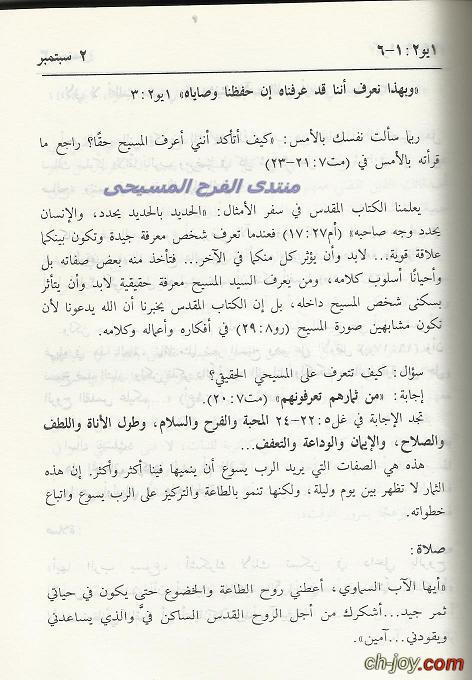 ١يو٢ :١-٦
٢ سبتمبر
«وبهذا نعرف أننا قد عرفناه إن حفظنا وصاياه» ١يو٢ :٣
ربما سألت نفسك بالأمس: «كيف أتأكد أنني أعرف المسيح حقًا؟ راجع ما
قرأته بالأمس في (مت٧ :٢١-٢٣)
منتدى الفرح المسيحى
يعلمنا الكتاب المقدس في سفر الأمثال: «الحديد بالحديد يحدد، والإنسان
يحدد وجه صاحبه» (أم٢٧ :١٧) فعندما تعرف شخص معرفة جيدة وتكون بينكما
علاقة قوية... لابد وأن يؤثر كل منكما في الآخر... فتأخذ منه بعض صفاته بل
وأحيانًا أسلوب كلامه، ومن يعرف السيد المسيح معرفة حقيقية لابد وأن يتأثر
بسكنى شخص المسيح داخله، بل إن الكتاب المقدس يخبرنا أن الله يدعونا لأن
نكون مشابهين صورة المسيح (رو٨ :٢٩) في أفكاره وأعماله وكلامه.
سؤال: كيف نتعرف على المسيحي الحقيقي؟
إجابة: «من ثمارهم تعرفونهم» (مت٧ :٢٠).
تجد الإجابة في غل٥ :٢٢-٢٤ المحبة والفرح والسلام، وطول الأناة واللطف
والصلاح، والإيمان والوداعة والتعفف...
هذه هي الصفات التي يريد الرب يسوع أن ينميها فينا أكثر وأكثر. إن هذه
الثمار لا تظهر بين يوم وليلة، ولكنها تنمو بالطاعة والتركيز على الرب يسوع واتباع
خطواته.
صلاة:
«أيها الآب السماوي، أعطني روح الطاعة والخضوع حتى يكون في حياتي
ثمر جيد...أشكرك من أجل الروح القدس الساكن فيَّ والذي يساعدني
ويقودني...آمين».
ch-joy.com